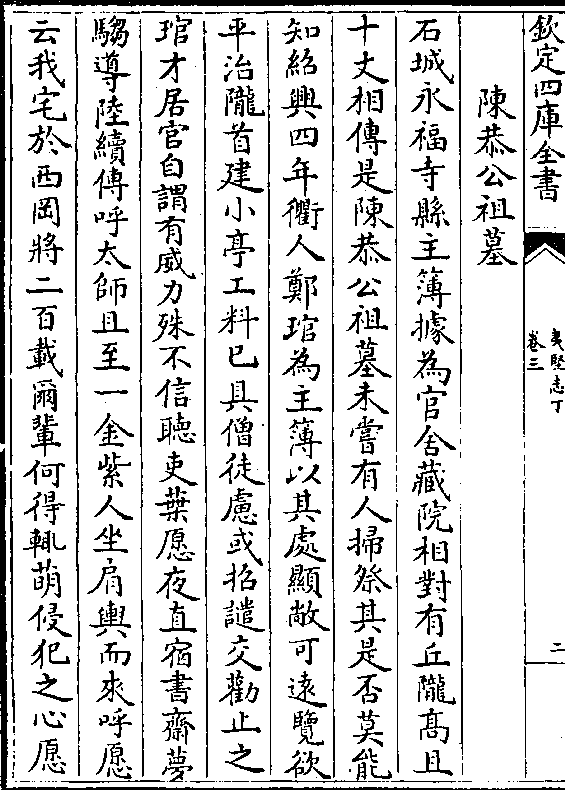 欽定四庫全書
夷堅志丁
卷三
二
陳恭公祖墓
石城永福寺縣主簿據為官舍藏院相對有丘隴髙且
十丈相傳是陳恭公祖墓未嘗有人掃祭其是否莫能
知紹興四年衢人鄭琯為主簿以其處顯敞可遠覽欲
平治隴首建小亭工料已具僧徒慮或招譴交勸止之
琯才居官自謂有威力殊不信聽吏葉愿夜直宿書齋夢
騶導陸續傳呼太師且至一金紫人坐肩輿而來呼愿
云我宅於西岡將二百載爾輩何得輒萌侵犯之心愿